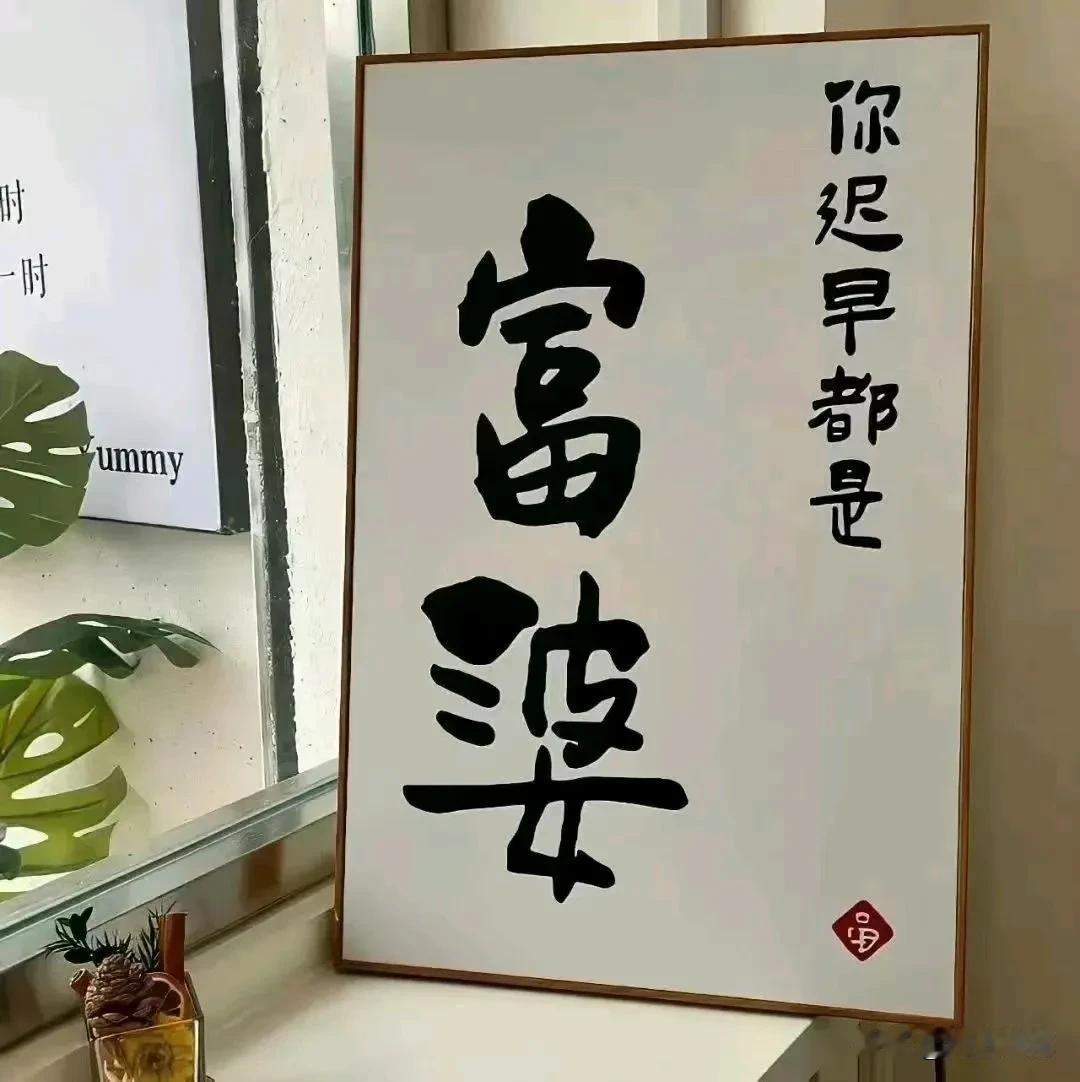 你迟早都是
富婆
时
一时
ummy